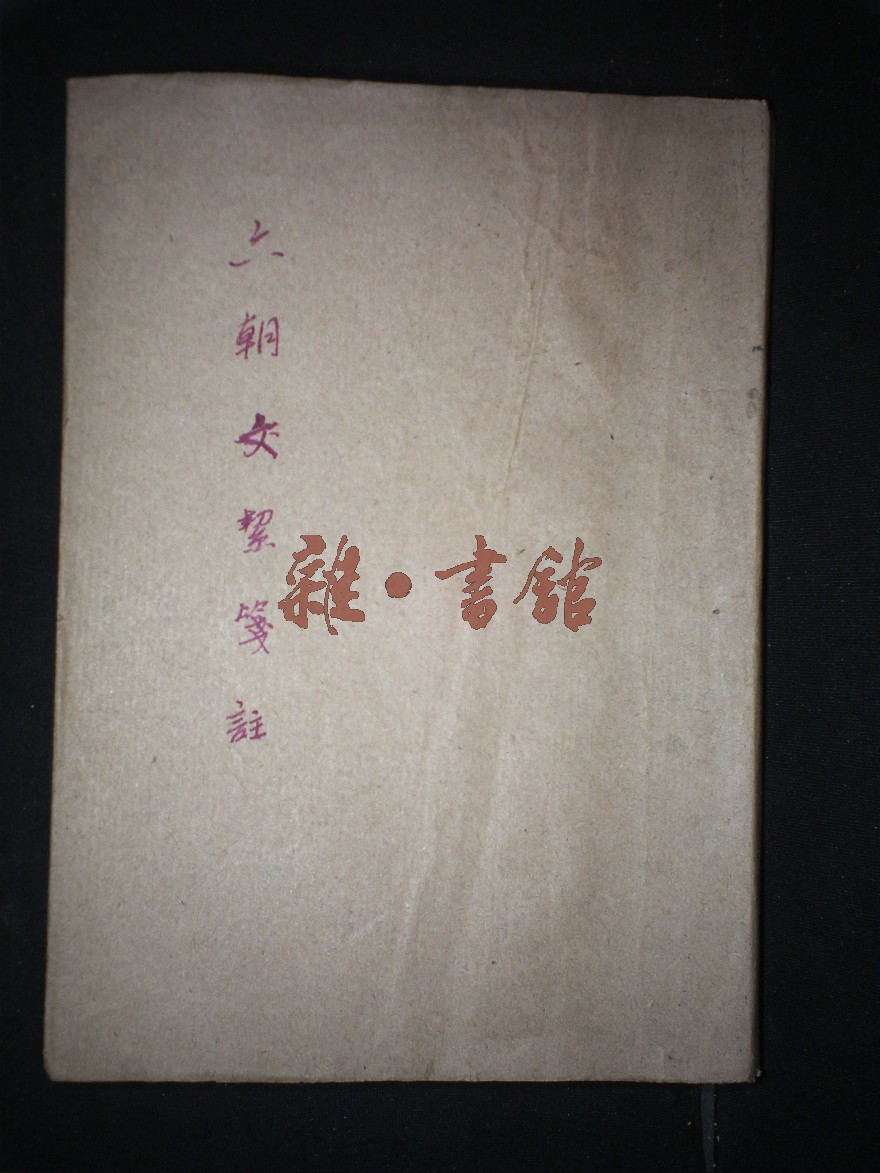 六朝文絜箋註
雜·書館